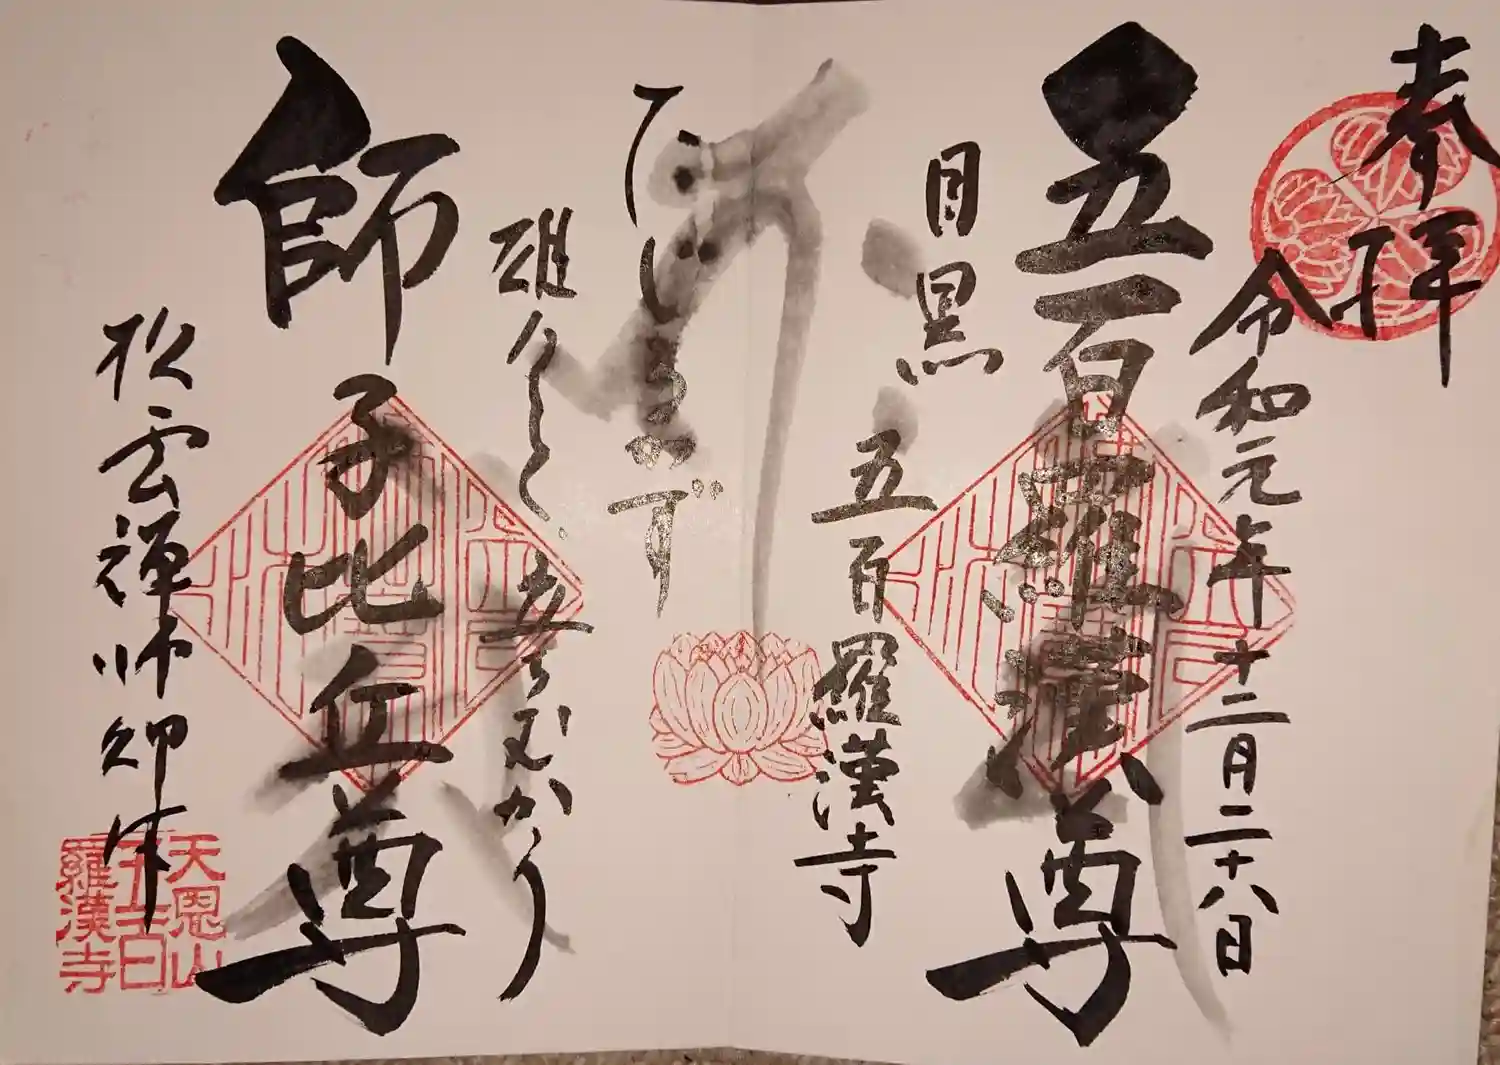 奉拝
令和元年十二月二十八日
五百羅漢尊
目黒
五百羅漢寺
ひしまず
雄々しく立ちむかう
師子比丘尊
松雲禅師御作
天恩山
五百
羅漢寺